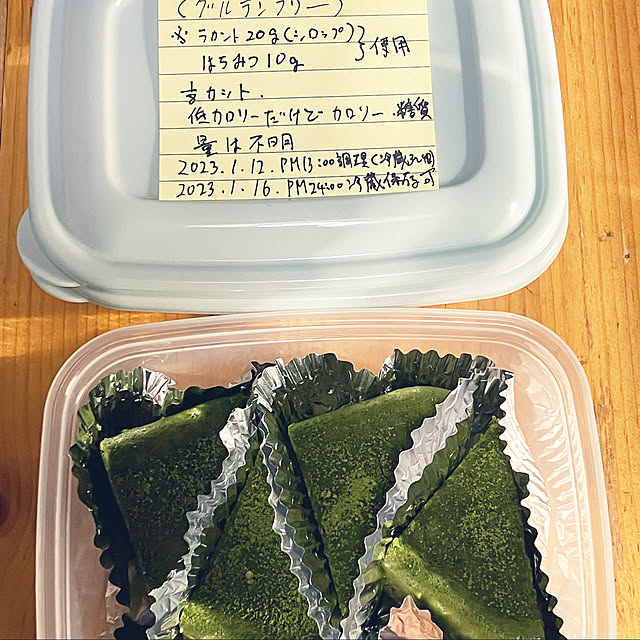 (グルテンフリー)
※ ラカント20g(シロップ)
はちみつ10g } 使用
古カット.
低カロリーだけどカロリー.糖質
量は不明
2023.1.12.PM13:00調理(冷蔵3日間
2023.1.16.PM24:00冷蔵保存可